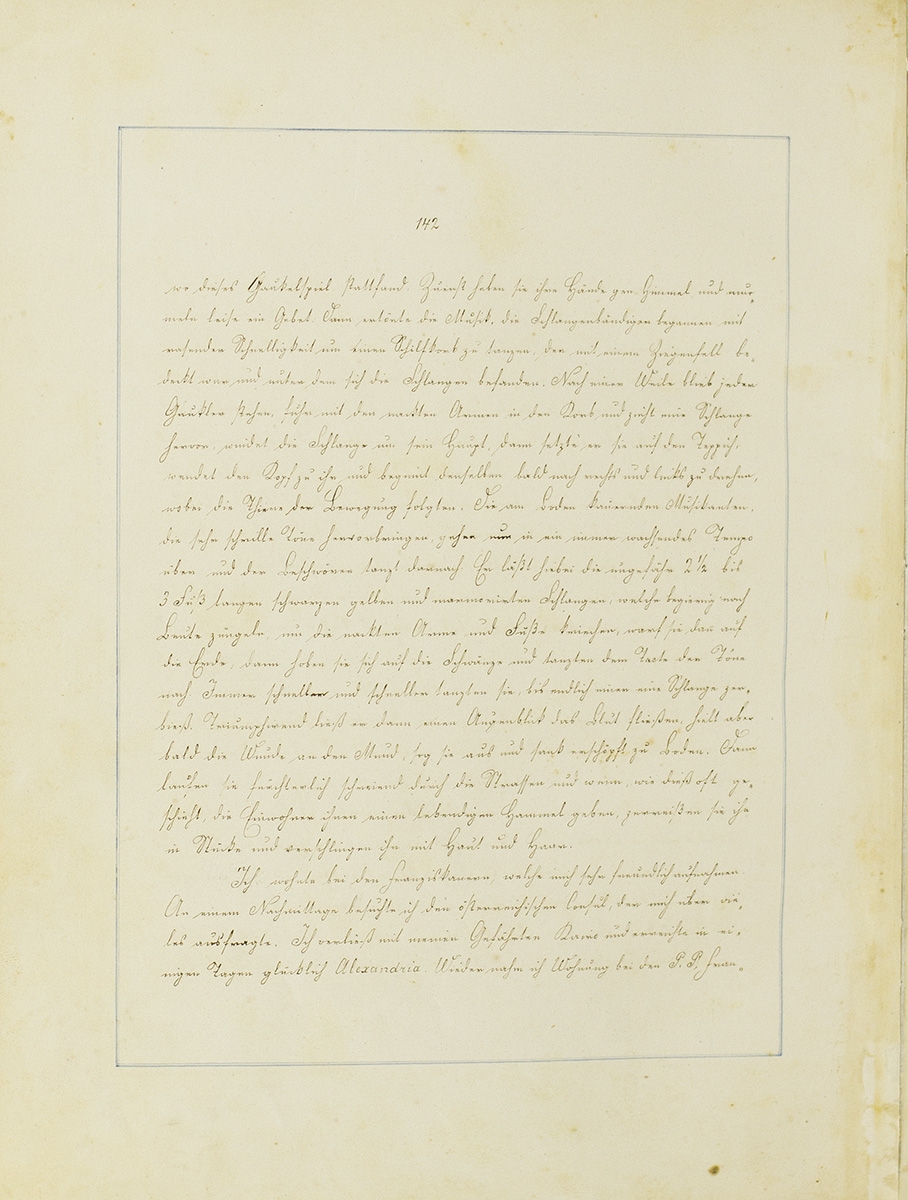 142
wo dieses Gaukelspiel stattfand. Zuerst heben sie ihre Hände gen Himmel und mur-
meln leise ein Gebet. Dann ertönte die Musik, die Schlangenbändiger begannen mit
rasender Schnelligkeit um einen Schilfkorb zu tanzen, der mit einem Ziegenfell be-
deckt war und unter dem sich die Schlangen befanden. Nach einer Weile blieb jeder
Gaukler stehen, fuhr mit den nackten Armen in den Korb und zieht eine Schlange
hervor, windet die Schlange um sein Haupt, dann setzte er sie auf den Teppich,
wendet den Kopf zu ihr und beginnt denselben bald nach rechts und links zu drehen,
wobei die Thiere der Bewegung folgten. Die am Boden kauernden Musikanten,
die sehr schrille Töne hervorbringen, gehen nun in ein immer wachsendes Tempo
über und der Beschwörer tanzt darnach. Er läßt hiebei die ungefähr 2 ½ bis
3 Fuß langen schwarzen gelben und marmorirten Schlangen, welche begierig nach
Beute züngeln, um die nackten Arme und Füße kriechen, warf sie dan auf
die Erde, dann hoben sie sich auf die Schwänze und tanzten dem Tacte der Töne
nach. Immer schneller und schneller tanzten sie, bis endlich einer eine Schlange zer-
biß. Triumphirend ließ er dann einen Augenblick das Blut fließen, hielt aber
bald die Wunde an den Mund, sog sie aus und sank erschöpft zu Boden. Dann
laufen sie fürchterlich schreiend durch die Strassen und wenn, wie dieß oft ge-
schieht, die Einwohner ihnen einen lebendigen Hammel geben, zerreißen sie ihn
in Stücke und verschlingen ihn mit Haut und Haar.
Ich wohnte bei den Franziskanern, welche mich sehr freundlich aufnahmen.
An einem Nachmittage besuchte ich den österreichischen Consul, der mich über vie-
les ausfragte. Ich verließ mit meinen Gefährten Kairo und erreichte in ei-
nigen Tagen glücklich Alexandria. Wieder nahm ich Wohnung bei den P. P. Fran-